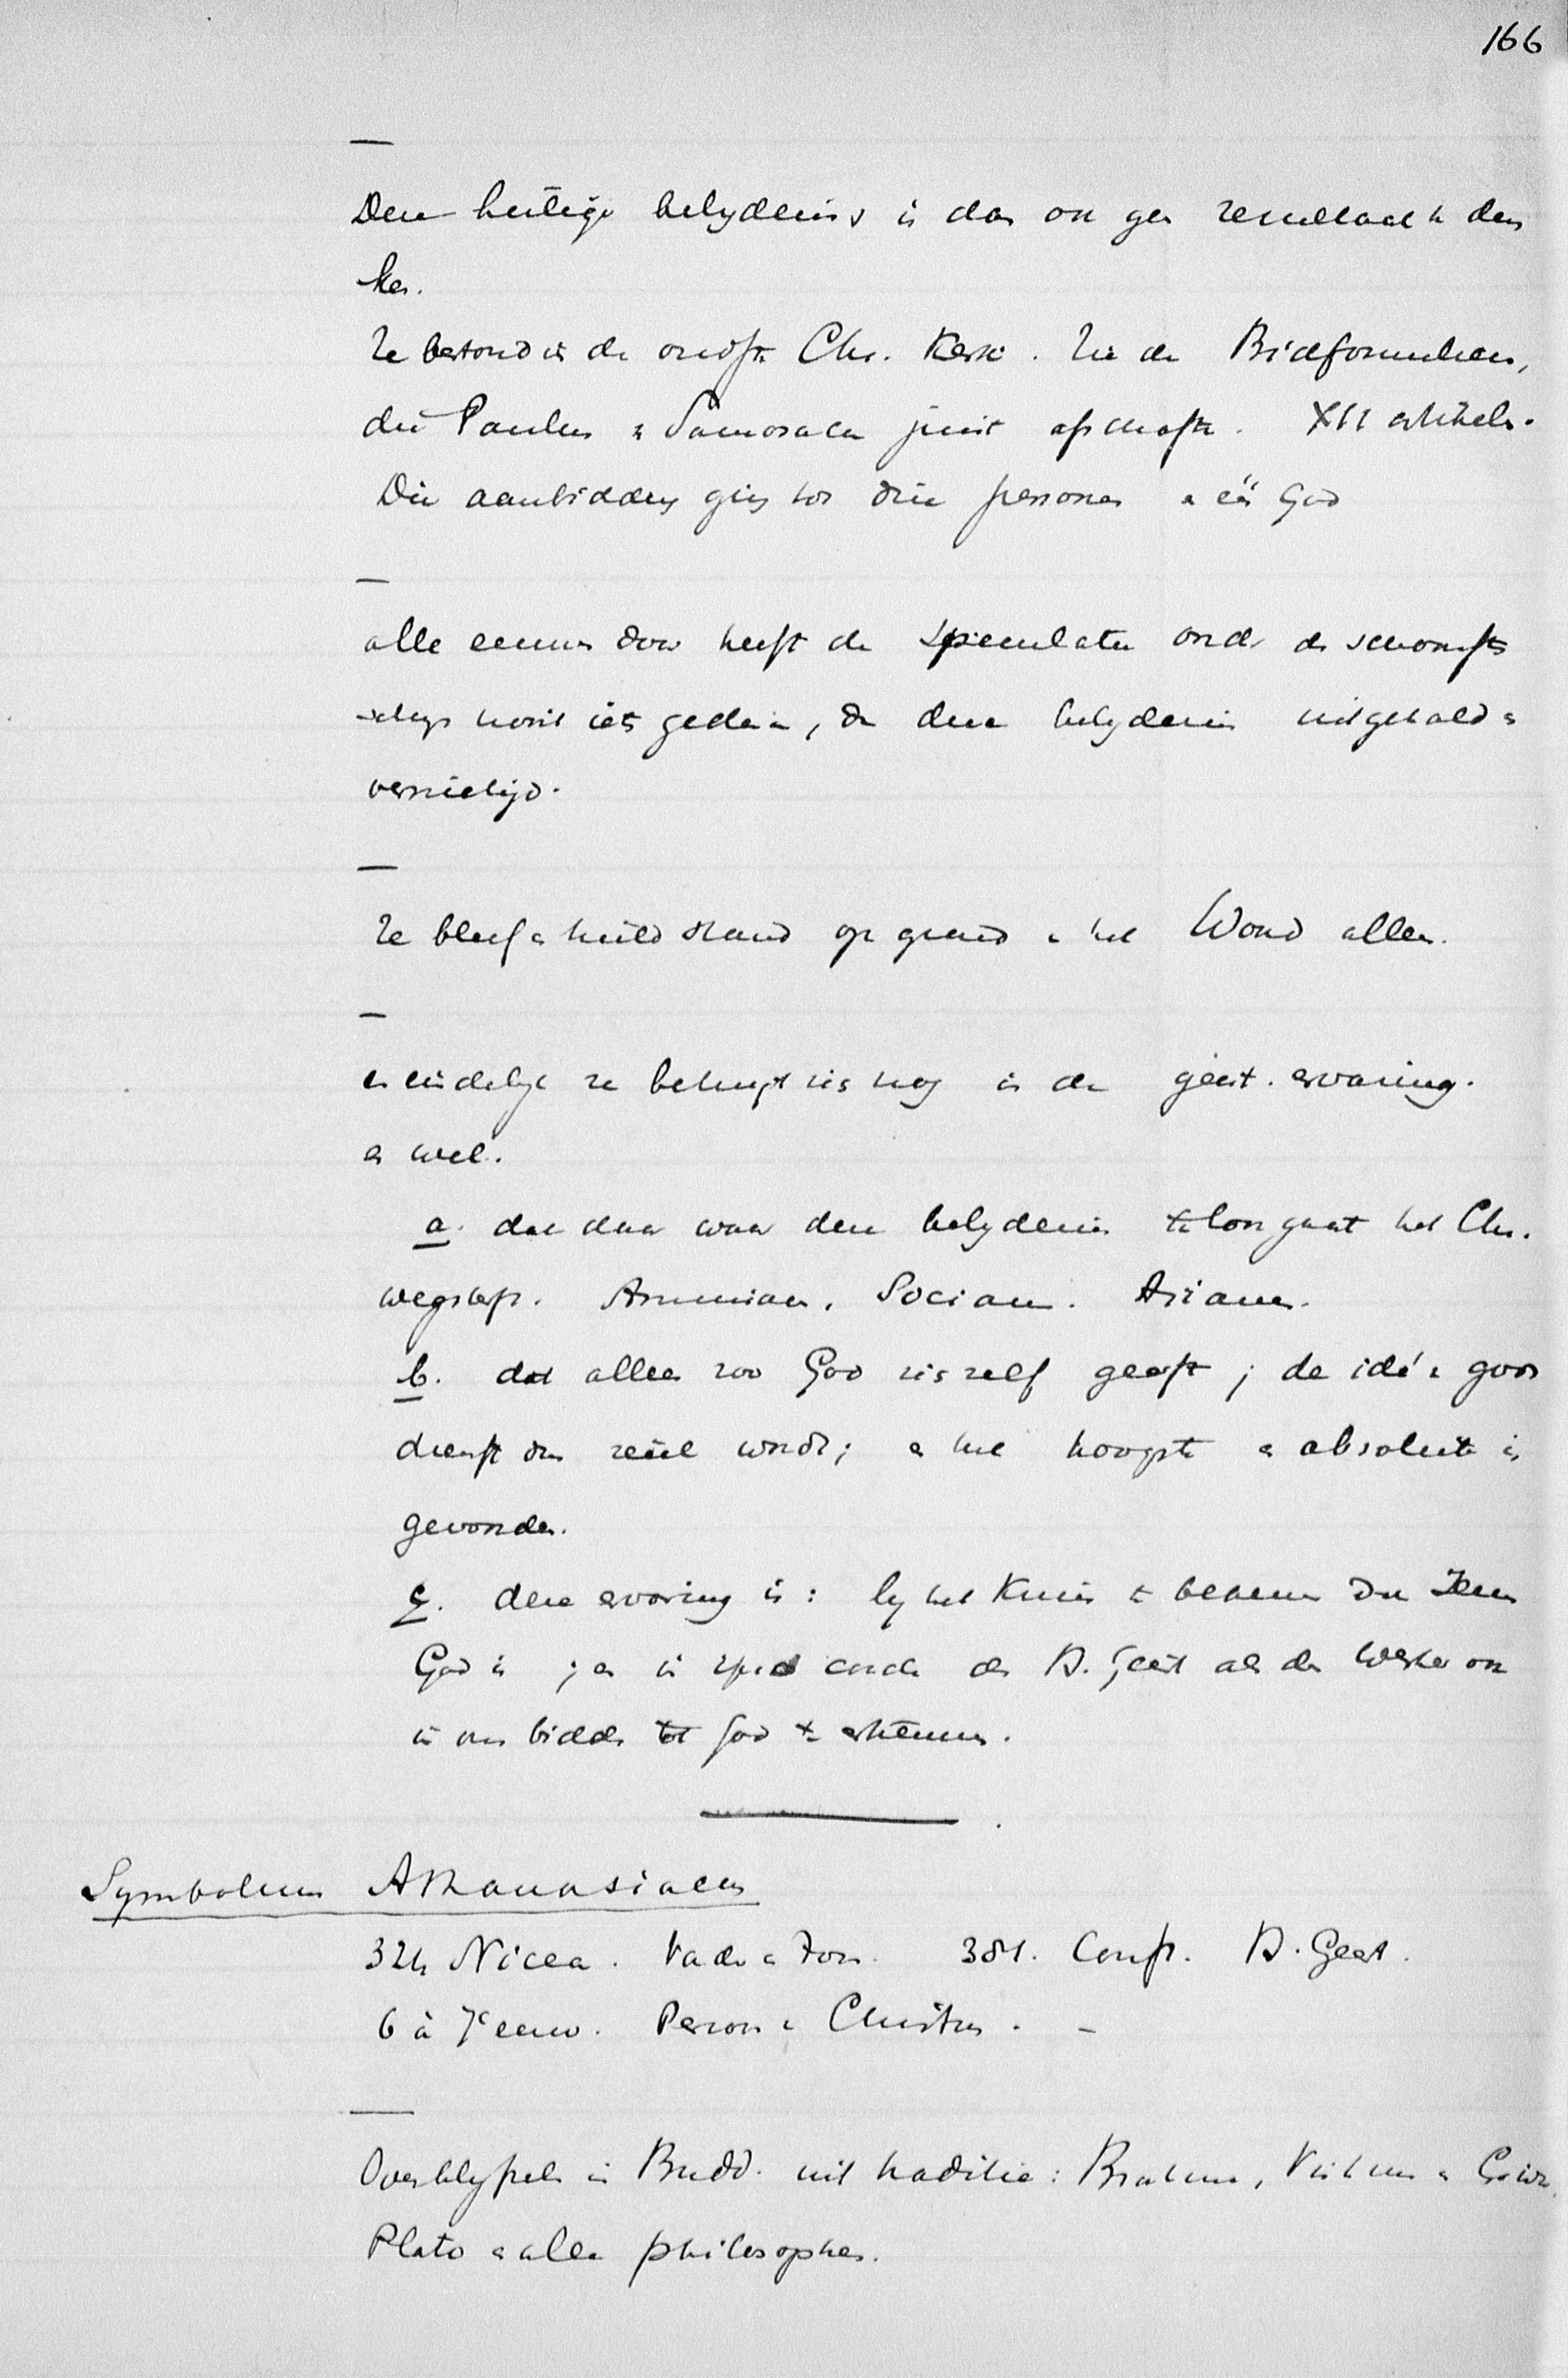 166
—
Deze heilige belydenis is dan ook geen resultaat v. den
ken.
Ze bestond in de oudste Chr. Kerk. Zie de Bidformulieren,
die Paulus v Samosata juist afschafte. XII artikels.
Die aanbidding ging tot drie personen & één God
—
alle eeuwen door heeft de speculatie onder de
nooit iets gedaan, dan deze belydenis uitgehold &
vernietigd.
—
Ze bleef & hield stand op grond v het Woord alleen.
—
en eindelyk ze bevestigt zich nog in de geest. ervaring.
en wel.
a. dat daar waar deze belydenis te loor gaat het Chr.
wegsterft. Arminian. Socian. Ariaan.
b. dat alleen zoo God zich zelf geeft; de idé v gods
dienst dus reëel wordt; & het hoogste & absolute is
gevonden.
c. deze ervaring is: by het Kruis te belyden dat Jezus
God is; en in den H. Geest als den Werker ook
in ons bidden tot God te erkennen.
Symbolum Athanasiacum
324 Nicea. Vader & Zoon. 381. Const. H. Geest.
6 à 7e eeuw. Persoon v Christus. –
—
Overblyfsels in Budd. uit traditie: Brahma, Vishnu & Çiwa.
Plato & alle philosophen.